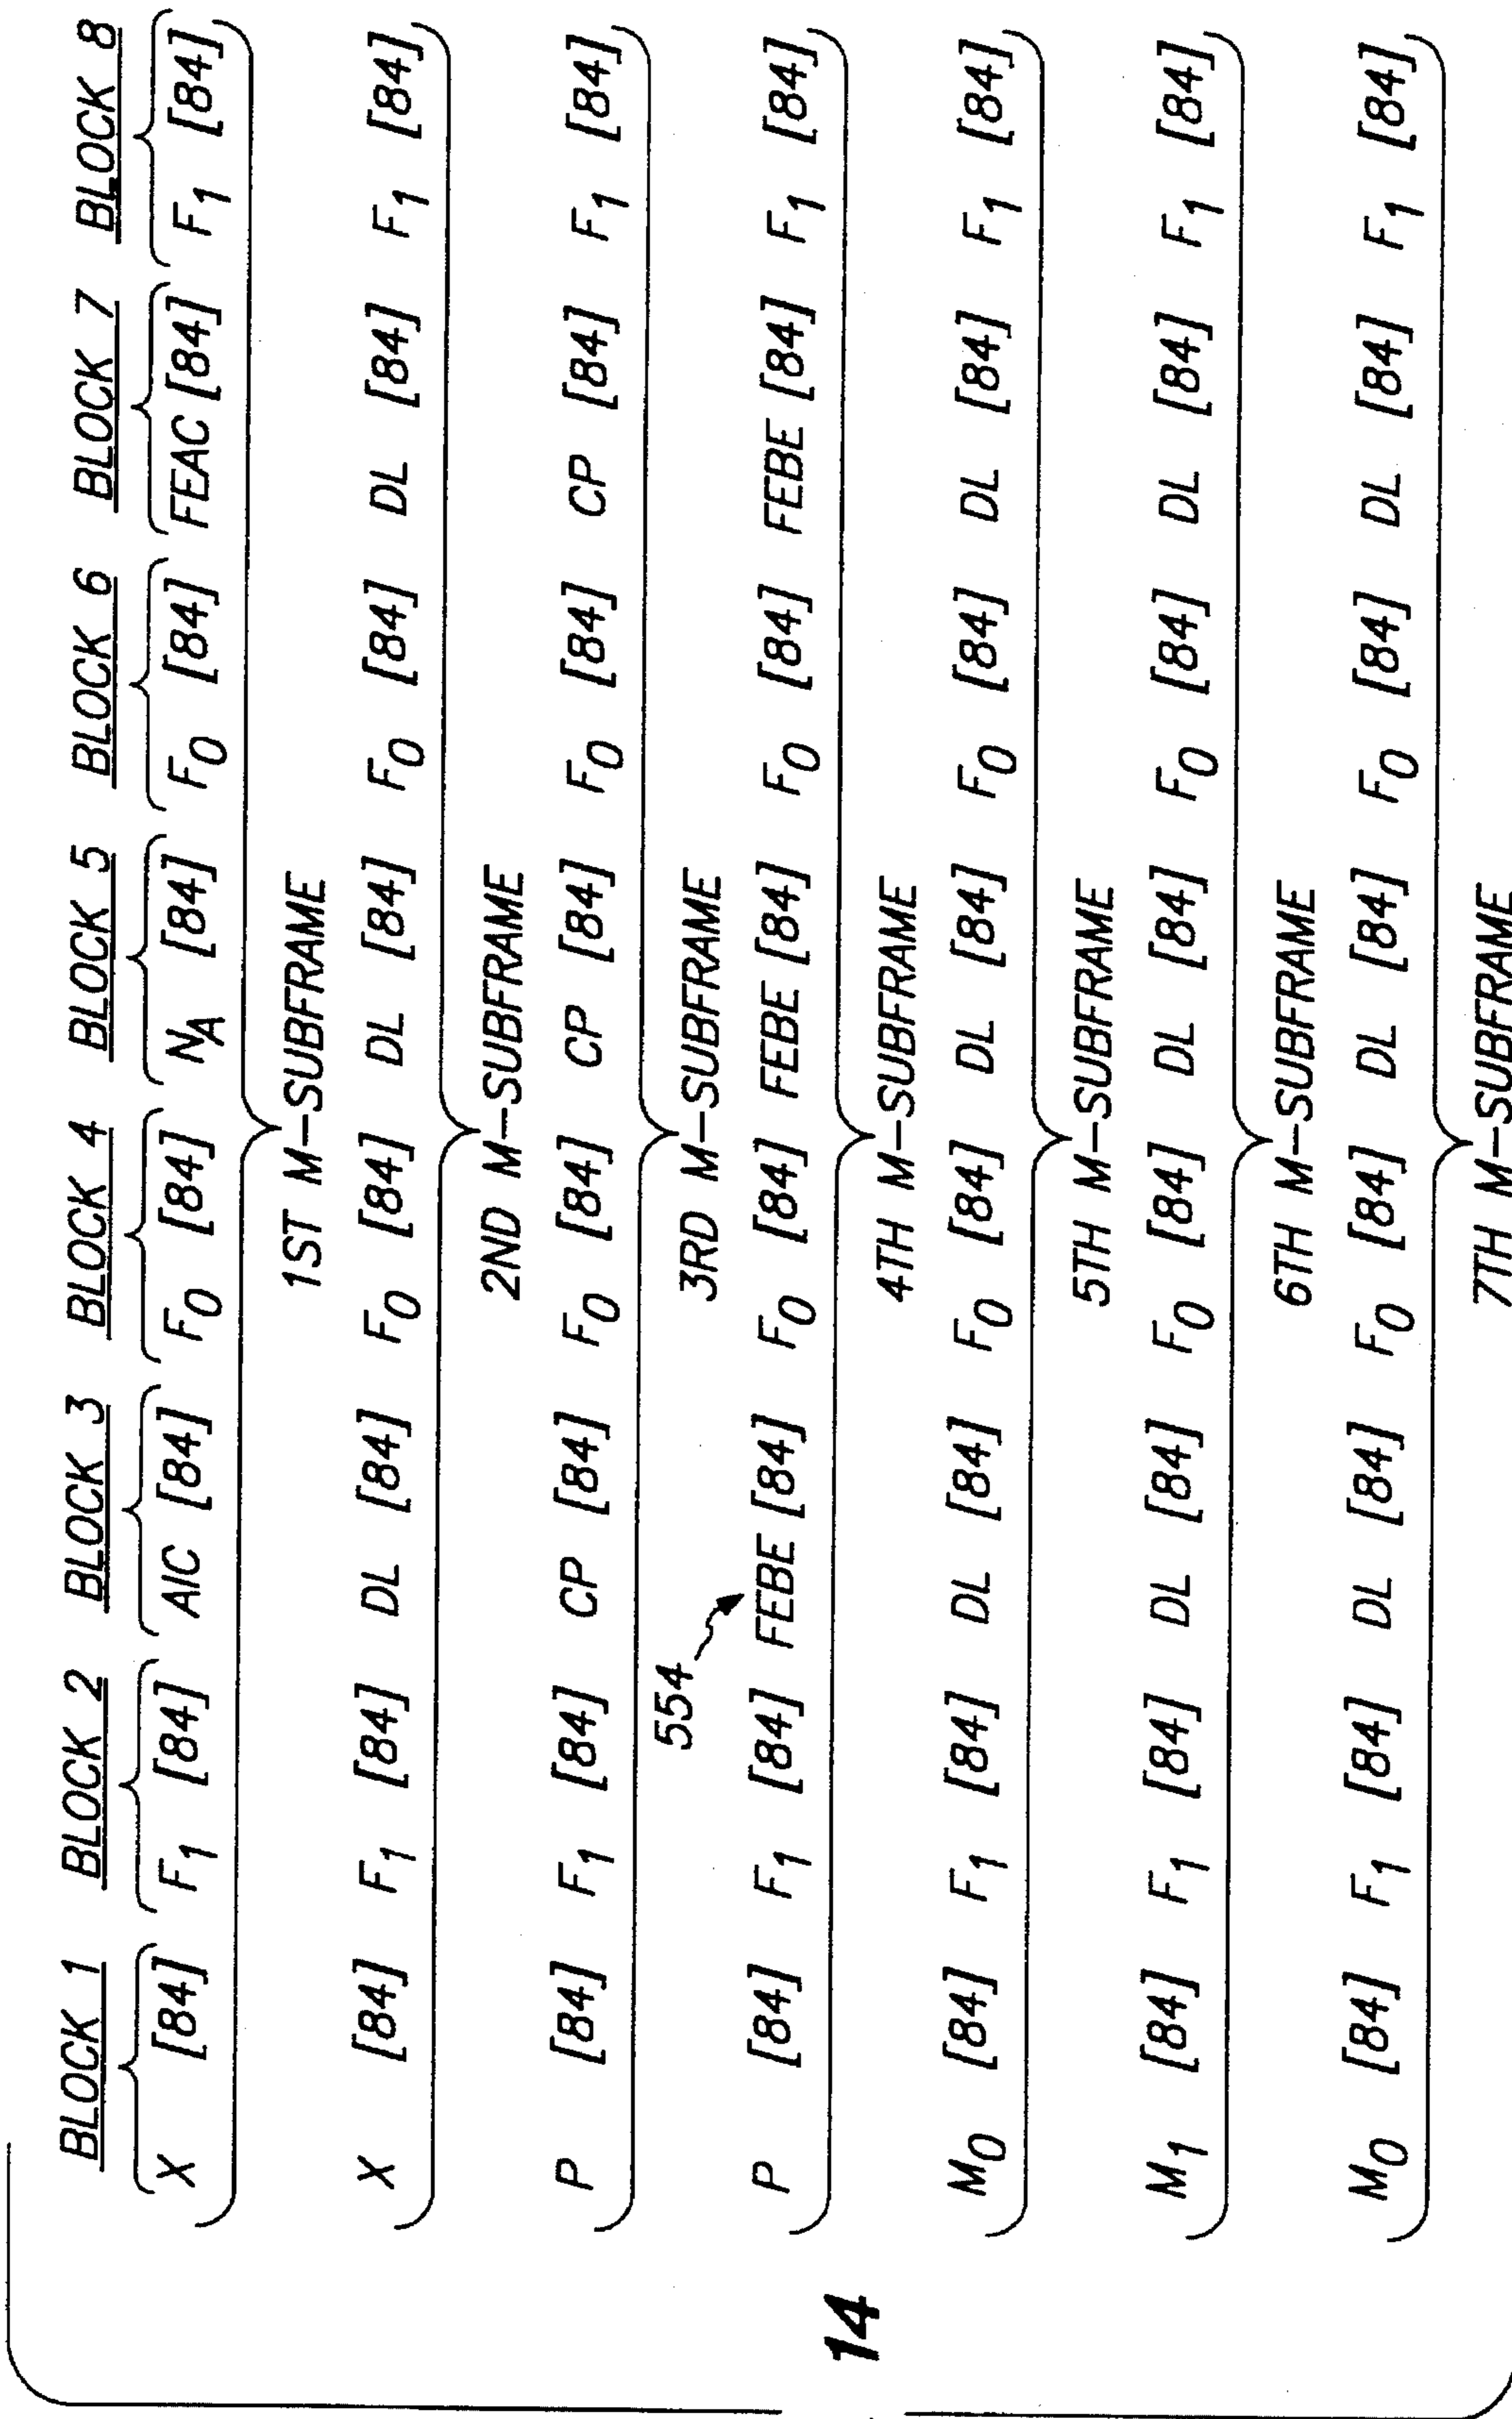 BLOCK 1 BLOCK 2 BLOCK 3 BLOCK 4 BLOCK 5 BLOCK 6 BLOCK 7 BLOCK 8
X [84] F1 [84] AIC [84] F0 [84] NA [84] F0 [84] FEAC [84] F1 [84]
1ST M-SUBFRAME
X [84] F1 [84] DL [84] F0 [84] DL [84] F0 [84] DL [84] F1 [84]
2ND M-SUBFRAME
P [84] F1 [84] CP [84] F0 [84] CP [84] F0 [84] CP [84] F1 [84]
3RD M-SUBFRAME
554
P [84] F1 [84] FEBE [84] F0 [84] FEBE [84] F0 [84] FEBE [84] F1 [84]
4TH M-SUBFRAME
M0 [84] F1 [84] DL [84] F0 [84] DL [84] F0 [84] DL [84] F1 [84]
5TH M-SUBFRAME
M1 [84] F1 [84] DL [84] F0 [84] DL [84] F0 [84] DL [84] F1 [84]
6TH M-SUBFRAME
M0 [84] F1 [84] DL [84] F0 [84] DL [84] F0 [84] DL [84] F1 [84]
7TH M-SUBFRAME
14